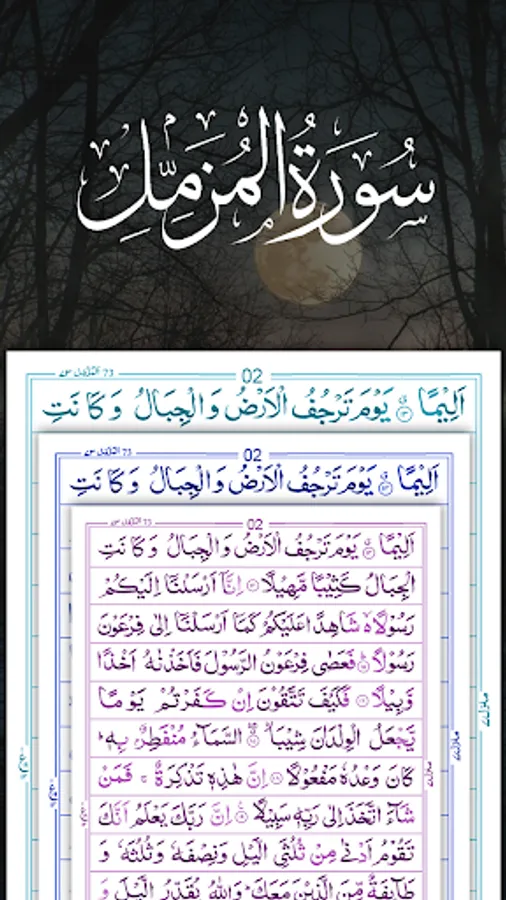 سُورَةُ الْمُزَّمِّلِ
02
اَلِيْمًا ۝ يَوْمَ تَرْجُفُ الْاَرْضُ وَالْجِبَالُ وَكَانَتِ
02
اَلِيْمًا ۝ يَوْمَ تَرْجُفُ الْاَرْضُ وَالْجِبَالُ وَكَانَتِ
02
اَلِيْمًا ۝ يَوْمَ تَرْجُفُ الْاَرْضُ وَالْجِبَالُ وَكَانَتِ
الْجِبَالُ كَثِيْبًا مَّهِيْلًا ۝ اِنَّاۤ اَرْسَلْنَاۤ اِلَيْكُمْ
رَسُوْلًا ۙ شَاهِدًا عَلَيْكُمْ كَمَاۤ اَرْسَلْنَاۤ اِلٰى فِرْعَوْنَ
رَسُوْلًا ۝ فَعَصٰى فِرْعَوْنُ الرَّسُوْلَ فَاَخَذْنٰهُ اَخْذًا
وَّبِيْلًا ۝ فَكَيْفَ تَتَّقُوْنَ اِنْ كَفَرْتُمْ يَوْمًا
يَّجْعَلُ الْوِلْدَانَ شِيْبًا ۝ السَّمَآءُ مُنْفَطِرٌۢ بِهٖ ؕ
كَانَ وَعْدُهٗ مَفْعُوْلًا ۝ اِنَّ هٰذِهٖ تَذْكِرَةٌ ۚ فَمَنْ
شَآءَ اتَّخَذَ اِلٰى رَبِّهٖ سَبِيْلًا ۝ اِنَّ رَبَّكَ يَعْلَمُ اَنَّكَ
تَقُوْمُ اَدْنٰى مِنْ ثُلُثَيِ الَّيْلِ وَنِصْفَهٗ وَثُلُثَهٗ وَ
طَآئِفَةٌ مِّنَ الَّذِيْنَ مَعَكَ ؕ وَاللّٰهُ يُقَدِّرُ الَّيْلَ وَ